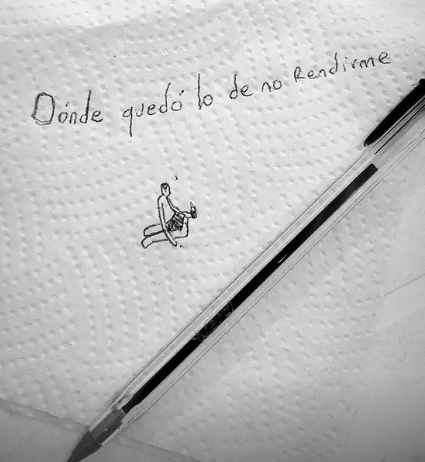 Dónde quedó lo de no Rendirme